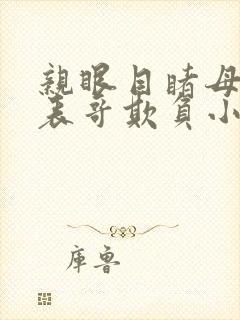 親眼目睹母
表哥欺負小
库鲁